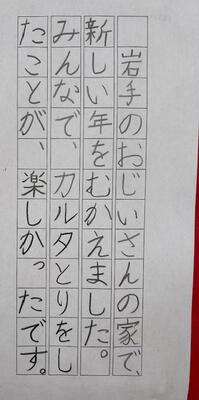 岩手のおじいさんの家で、
新しい年をむかえました。
みんなで、カルタとりをし
たことが、楽しかったです。